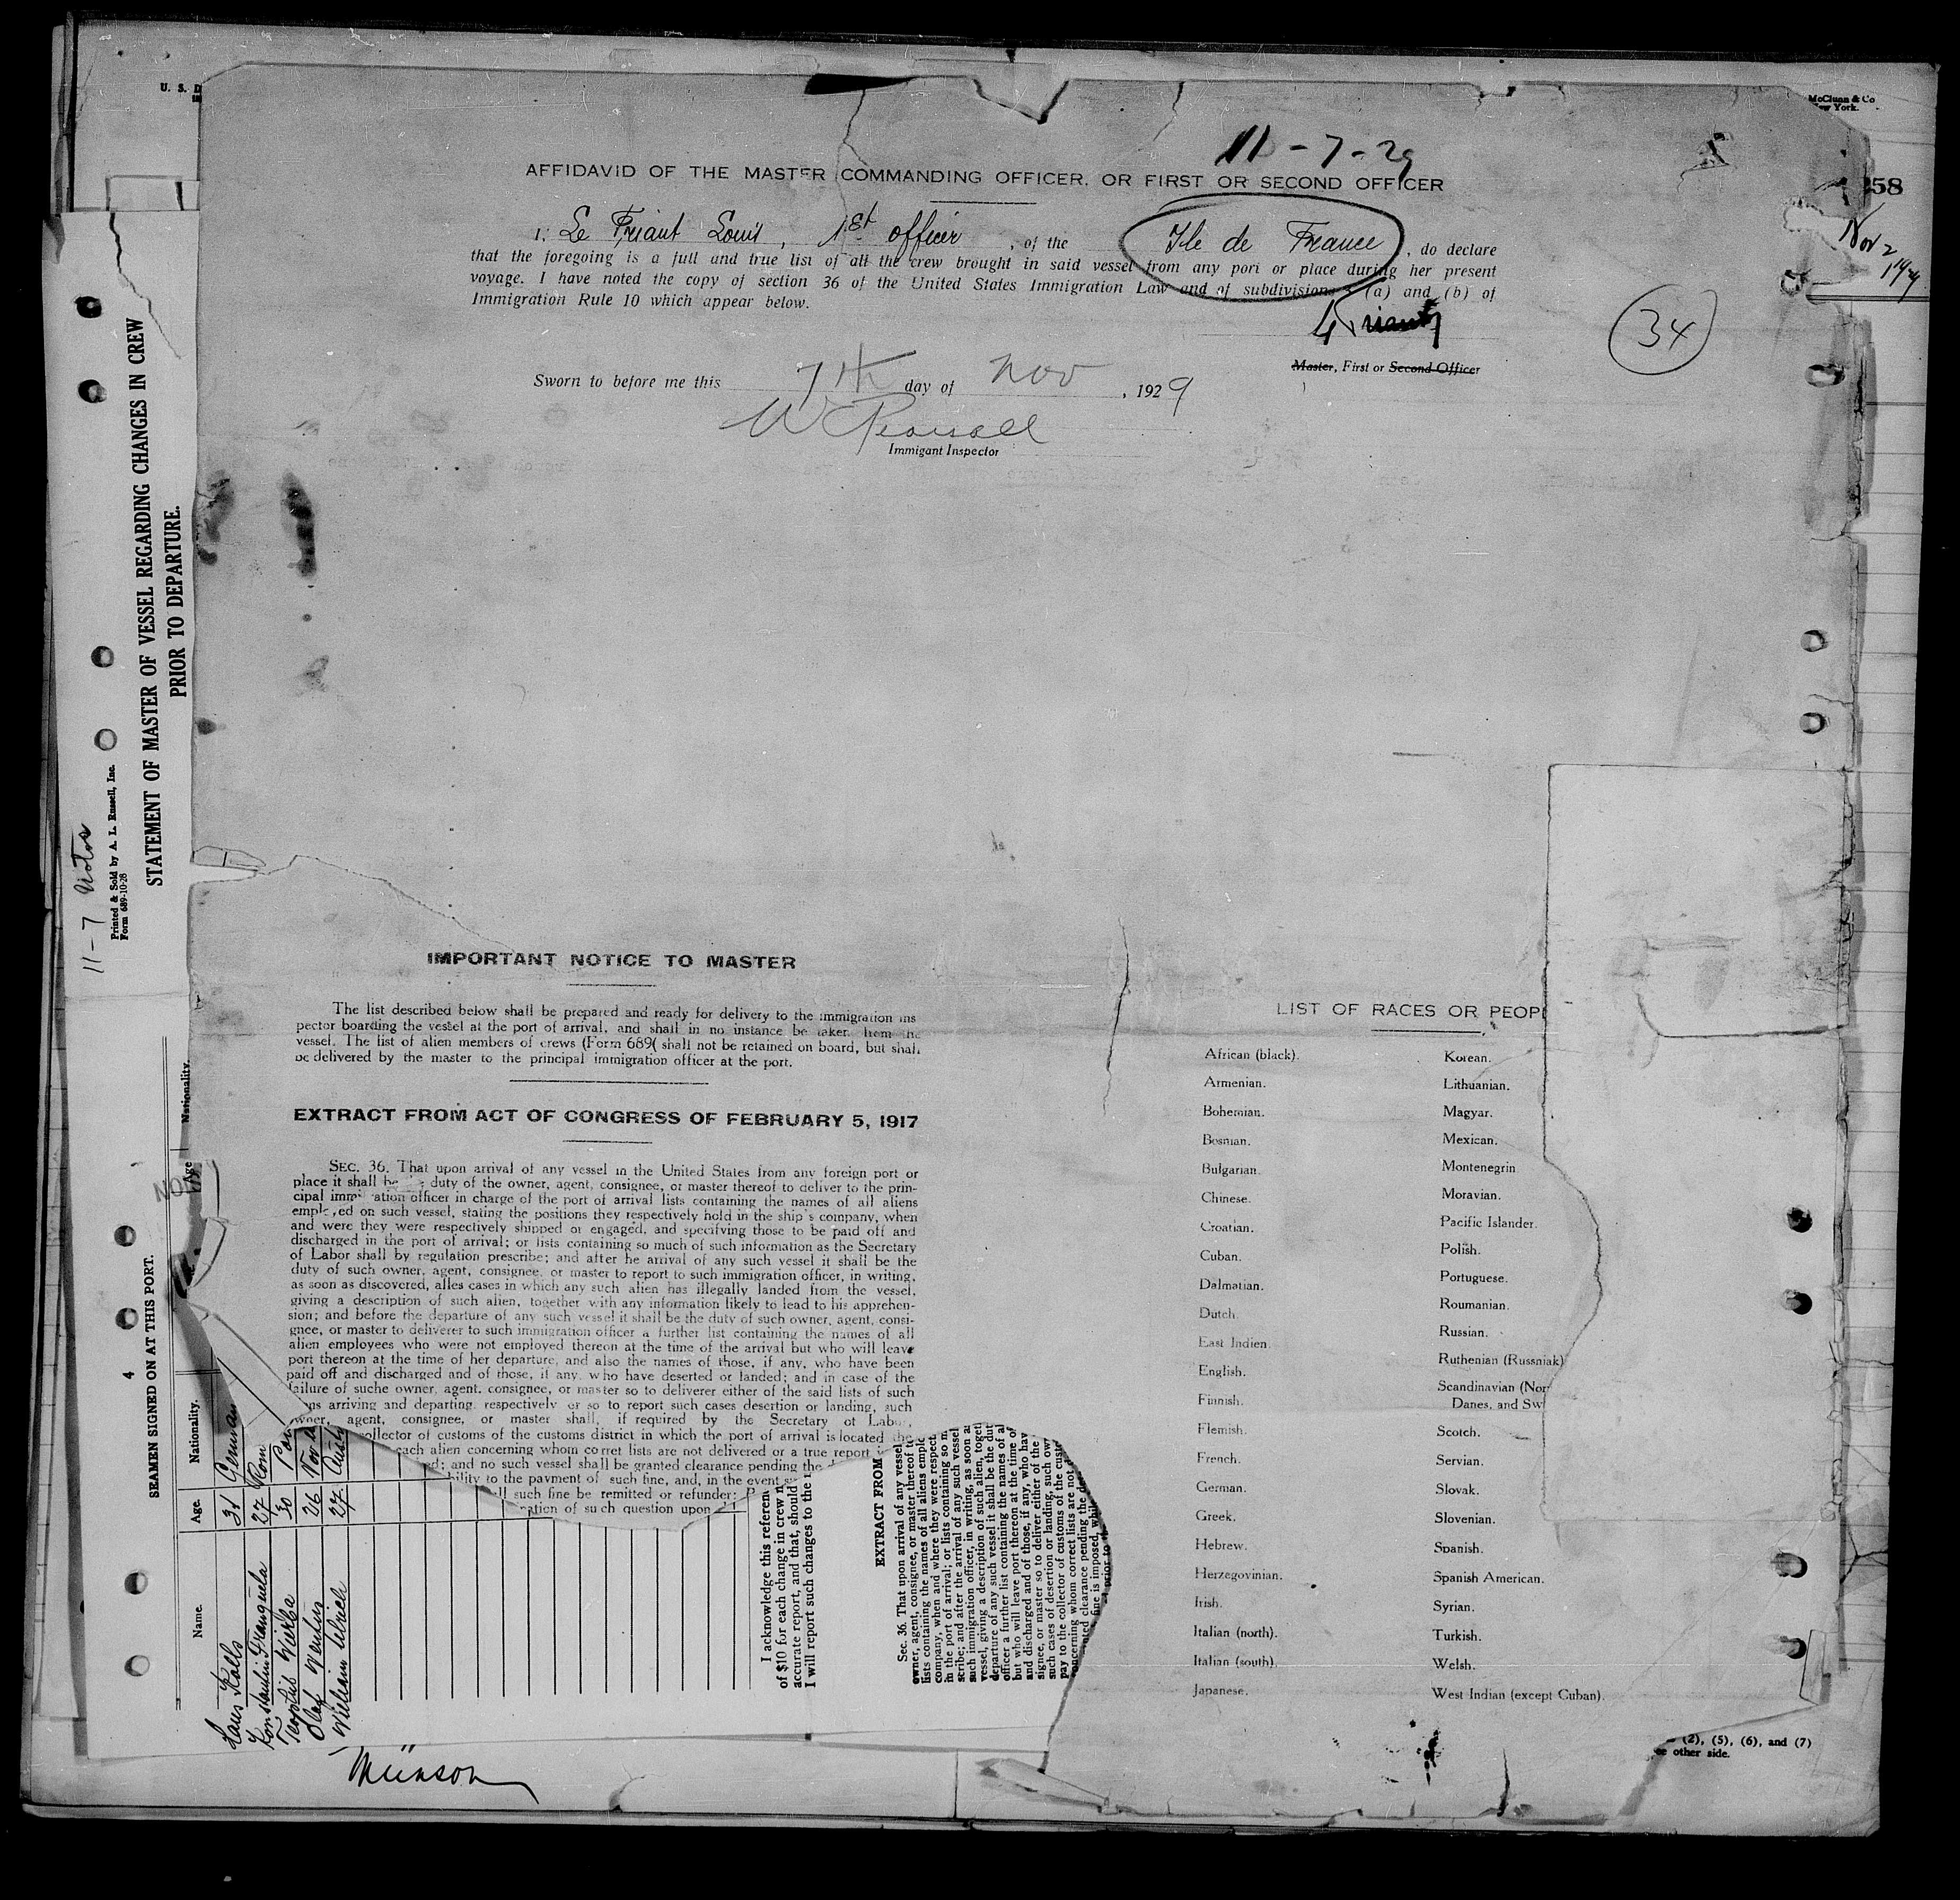 U. S. D
McClunn & Co
New York.
11 - 7 - 29
AFFIDAVID OF THE MASTER COMMANDING OFFICER, OR FIRST OR SECOND OFFICER
58
Nov 2
I, Le Friant Louis, 1st officer, of the Ile de France, do declare
that the foregoing is a full and true list of all the crew brought in said vessel from any port or place during her present
voyage. I have noted the copy of section 36 of the United States Immigration Law and of subdivisions (a) and (b) of
Immigration Rule 10 which appear below.
34
Master, First or Second Officer
Sworn to before me this 7th day of Nov, 1929
Immigant Inspector
IMPORTANT NOTICE TO MASTER
The list described below shall be prepared and ready for delivery to the immigration ins
pector boarding the vessel at the port of arrival, and shall in no instance be taken from the
vessel. The list of alien members of crews (Form 689( shall not be retained on board, but shall
be delivered by the master to the principal immigration officer at the port.
EXTRACT FROM ACT OF CONGRESS OF FEBRUARY 5, 1917
SEC. 36. That upon arrival of any vessel in the United States from any foreign port or
place it shall be duty of the owner, agent, consignee, or master thereof to deliver to the prin-
cipal immigration officer in charge of the port of arrival lists containing the names of all aliens
employed on such vessel, stating the positions they respectively hold in the ship's company, when
and were they were respectively shipped or engaged, and specifying those to be paid off and
discharged in the port of arrival; or lists containing so much of such information as the Secretary
of Labor shall by regulation prescribe; and after he arrival of any such vessel it shall be the
duty of such owner, agent, consignee, or master to report to such immigration officer, in writing,
as soon as discovered, alles cases in which any such alien has illegally landed from the vessel,
giving a description of such alien, together with any information likely to lead to his apprehen-
sion; and before the departure of any such vessel it shall be the duty of such owner, agent, consi-
gnee, or master to deliverer to such immigration officer a further list containing the names of all
alien employees who were not employed thereon at the time of the arrival but who will leave
port thereon at the time of her departure, and also the names of those, if any, who have been
paid off and discharged and of those, if any, who have deserted or landed; and in case of the
failure of suche owner, agent, consignee, or master so to deliverer either of the said lists of such
arriving and departing, respectively or so to report such cases desertion or landing, such
owner, agent, consignee, or master shall, if required by the Secretary of Labor,
collector of customs of the customs district in which the port of arrival is located the
each alien concerning whom corret lists are not delivered or a true report
and no such vessel shall be granted clearance pending the
bility to the payment of such fine, and, in the event
such fine be remitted or refunder;
ation of such question upon
LIST OF RACES OR PEOPL
African (black).
Armenian.
Bohemian.
Bosnian.
Bulgarian.
Chinese.
Croatian.
Cuban.
Dalmatian.
Dutch.
East Indien.
English.
Finnish.
Flemish.
French.
German.
Greek.
Hebrew.
Herzegovinian.
Irish.
Italian (north).
Italian (south).
Japanese.
Korean.
Lithuanian.
Magyar.
Mexican.
Montenegrin
Moravian.
Pacific Islander.
Polish.
Portuguese.
Roumanian.
Russian.
Ruthenian (Russniak)
Scandinavian (Nor
Danes, and Sw
Scotch.
Servian.
Slovak.
Slovenian.
Spanish.
Spanish American.
Syrian.
Turkish.
Welsh.
West Indian (except Cuban).
(2), (5), (6), and (7)
other side.
11-7
Printed & Sold by A. L. Russell, Inc.
Form 689-10-28
STATEMENT OF MASTER OF VESSEL REGARDING CHANGES IN CREW
PRIOR TO DEPARTURE.
4
SEAMEN SIGNED ON AT THIS PORT.
Name. Age. Nationality. Age Nationality.
Kolls 31 German
Konstantin 27
30
Olaf 26
William Ulrich 27
I acknowledge this referen
of $10 for each change in crew n
accurate report, and that, should
I will report such changes to the
EXTRACT FROM
Sec. 36. That upon arrival of any vessel
owner, agent, consignee, or master thereof t
lists containing the names of all aliens emplo
company, when and where they were respect
in the port of arrival; or lists containing so m
scribe; and after the arrival of any such vessel
such immigration officer, in writing, as soon a
vessel, giving a description of such alien, togeth
departure of any such vessel it shall be the dut
officer a further list containing the names of al
but who will leave port thereon at the time of
and discharged and of those, if any, who hav
signee, or master so to deliver either of the
such cases of desertion or landing, such ow
pay to the collector of customs of the custo
concerning whom correct lists are not
clearance pending the de
fine is imposed, while
prior to
Münson